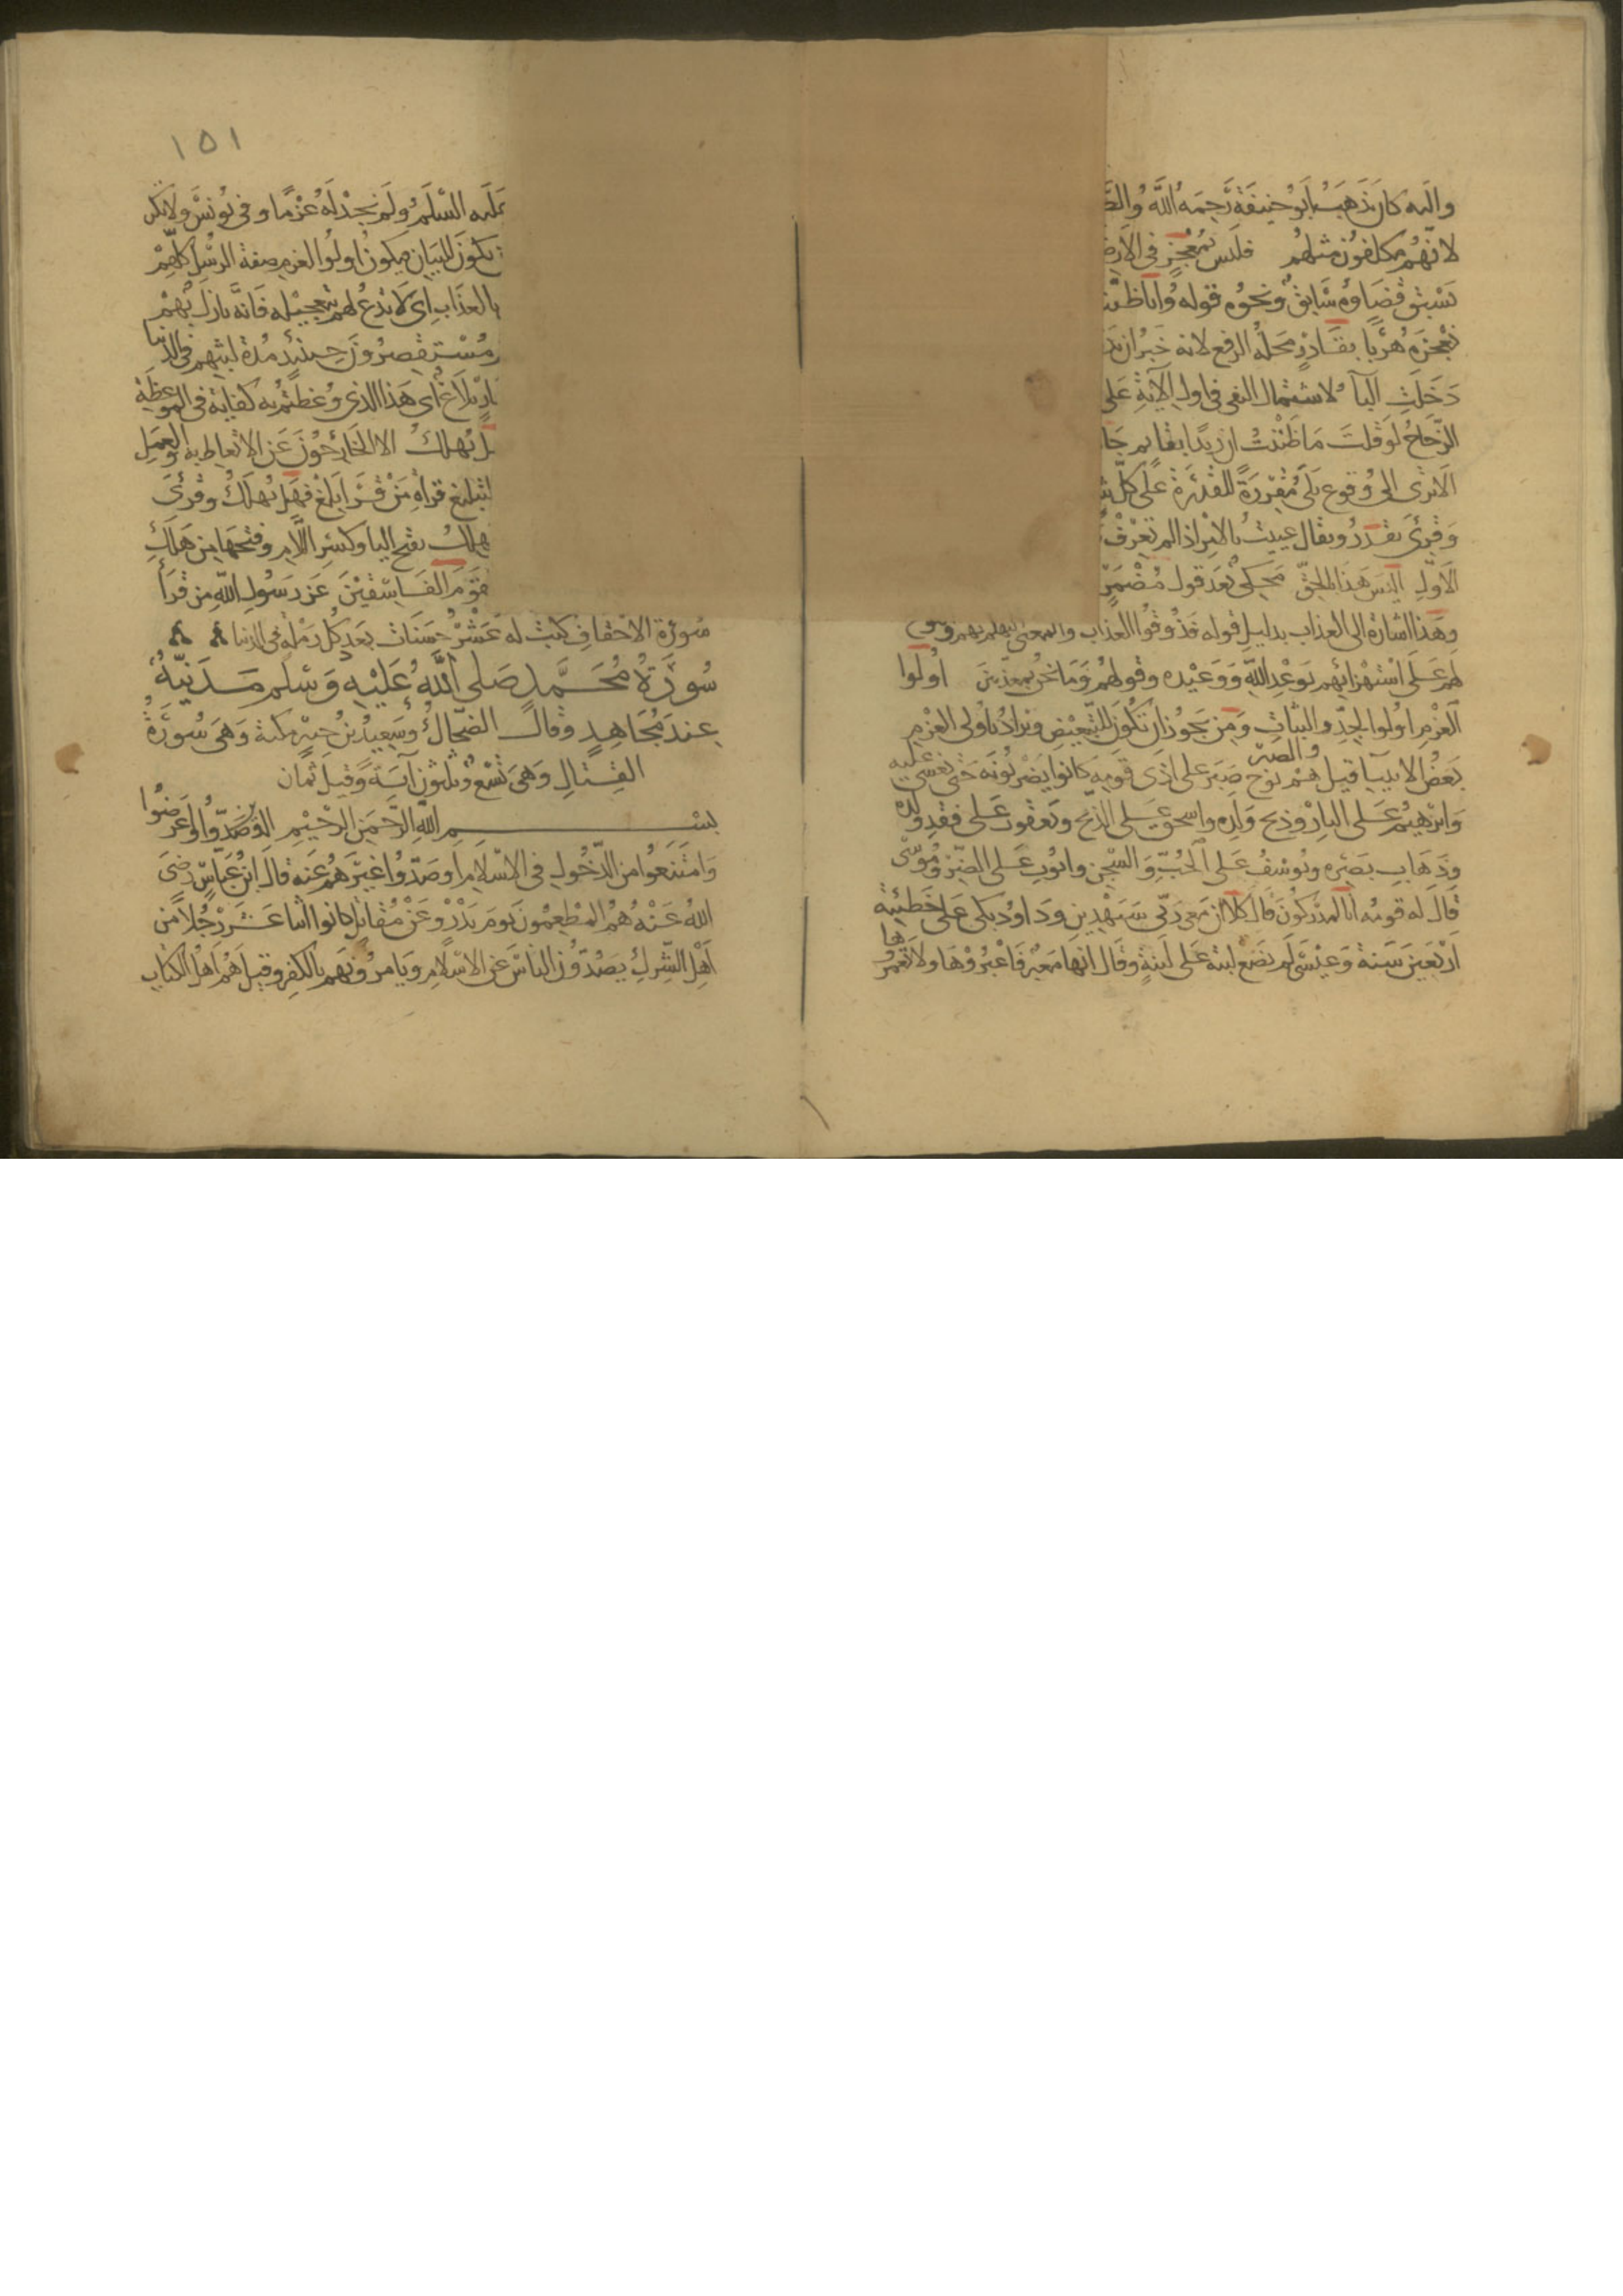 واليه كان يذهب ابو حنيفة رحمه الله والظ
لانهم مكلفون مثلهم فليس بمعجز في الارض
يسبق قضاوه سابق ونحوه قوله وانا ظننا
نعجزه هربا بقادر محله الرفع لانه خبر ان
دخلت الباء لاشتمال النفي في اول الآية على
الزجاج لو قلت ما ظننت ان زيدا بقايم جا
الا ترى الى وقوع بلى مقررة للقدرة على كل
وقرئ يقدر ويقال عييت بالامر اذا لم تعرف
الاول اليس هذا بالحق محكي بعد قول مضمر
وهذا اشارة الى العذاب بدليل قوله فذوقوا العذاب والمعنى التهكم بهم
لهم على استهزائهم بوعد الله ووعيده وقولهم وما نحن بمعذبين اولوا
العزم اولوا الجد والثبات والصبر ومن يجوز ان تكون للتبعيض ويراد باولي العزم
بعض الانبيا قيل هم نوح صبر على اذى قومه كانوا يضربونه حتى يغشى عليه
وابرهيم على النار وذبح ولده واسحق على الذبح ويعقوب على فقد ولده
وذهاب بصره ويوسف على الجب والسجن وايوب على الضر وموسى
قال له قومه انا لمدركون قال كلا ان معي ربي سيهدين وداود بكى على خطيئته
اربعين سنة وعيسى لم يضع لبنة على لبنة وقال انها معبر فاعبروها ولا تعمروها
١٥١
عليه السلم ولم نجد له عزما وفي يونس ولا تكن
تكون للبيان فيكون اولوا العزم صفة الرسل كلهم
بالعذاب اي لا تدع لهم بتعجيله فانه نازل بهم
مستقصرون حينئذ مدة لبثهم في الدنيا
بلاغ اي هذا الذي وعظتم به كفاية في الموعظة
يهلك الا الخارجون عن الاتعاظ به والعمل
تبليغ قراه من قرا بلغ فهل يهلك وقرئ
يهلك بفتح اليا وكسر اللام وفتحها من هلك
القوم الفاسقين عن رسول الله من قرأ
سورة الاحقاف كتب له عشر حسنات بعدد كل رملة في الدنيا
سورة محمد صلى الله عليه وسلم مدنية
عند مجاهد وقال الضحاك وسعيد بن جبير مكية وهي سورة
القتال وهي تسع وثلثون آية وقيل ثمان
بسم الله الرحمن الرحيم الذين وصدوا اعرضوا
وامتنعوا من الدخول في الاسلام او صدوا غيرهم عنه قال ابن عباس رضي
الله عنه هم المطعمون يوم بدر وعن مقاتل كانوا اثنا عشر رجلا من
اهل الشرك يصدون الناس عن الاسلام ويامرونهم بالكفر وقيل هم اهل الكتاب